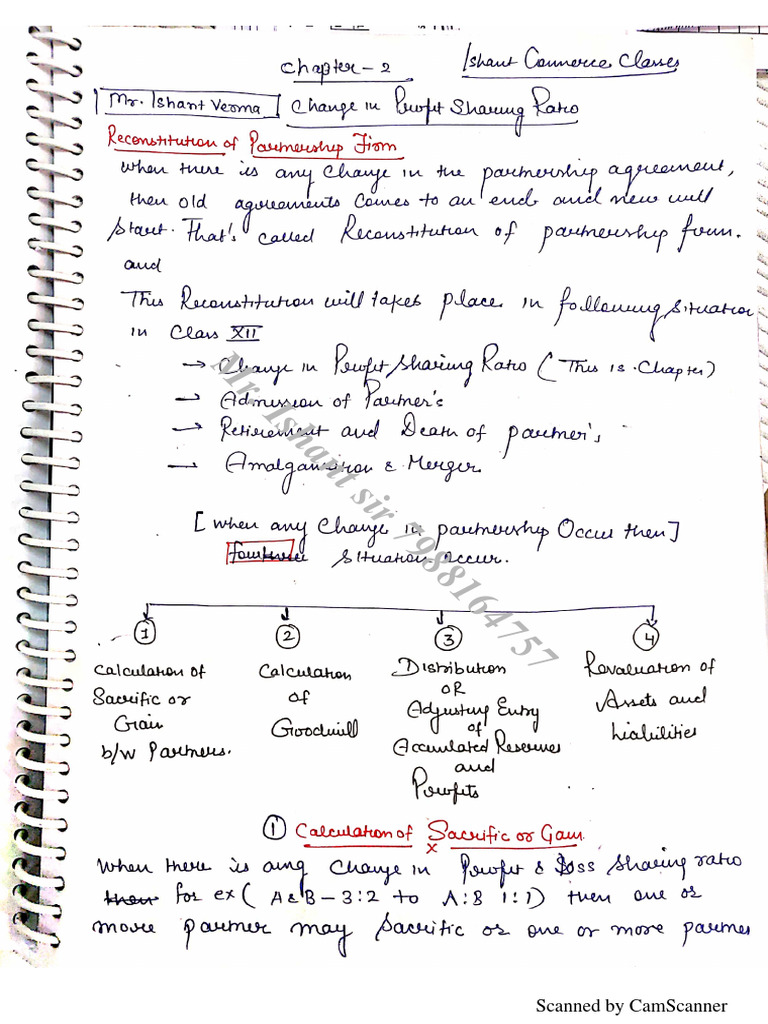 Chapter-2
Ishant Commerce Classes
Mr. Ishant Verma
Change in Profit Sharing Ratio
Reconstitution of Partnership Firm
when there is any change in the partnership agreement,
then old agreements comes to an end and new will
start. That's called Reconstitution of partnership firm.
and
This Reconstitution will takes place in following situation
in Class XII
→ Change in Profit Sharing Ratio (This is Chapter)
→ Admission of Partner's
→ Retirement and Death of partner's
— Amalgamation & Merger
[when any change in partnership Occur then]
four situation occur.
1 2 3 4
Calculation of
Sacrific or
Gain
b/w Partners.
Calculation
of
Goodwill
Distribution
OR
Adjusting Entry
of
Accumulated Reserves
and
Profits
Revaluation of
Assets and
Liabilities
Mr. Ishant sir 7988164757
1 Calculation of Sacrific or Gain
x
When there is any change in Profit & loss sharing ratio
then for ex ( A & B - 3:2 to A:B 1:1) then one or
more partner may Sacrific or one or more partner
Scanned by CamScanner